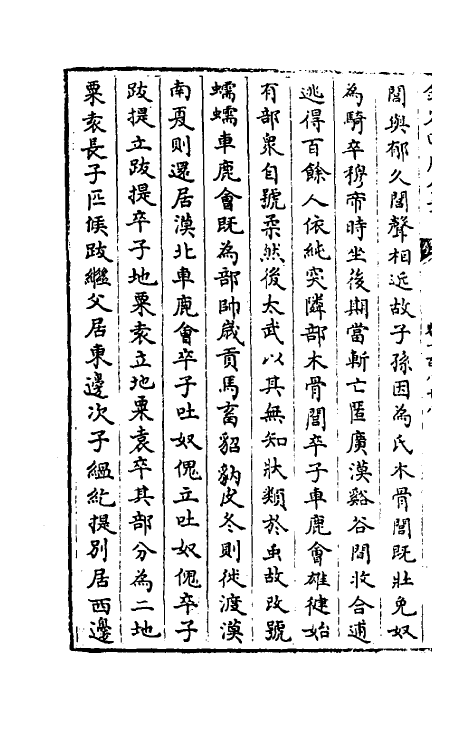 閭與郁久閭聲相近故子孫因為氏木骨閭既壯免奴
為騎卒穆帝時坐後期當斬亡匿廣漠谿谷間收合逋
逃得百餘人依純突隣部木骨閭卒子車鹿會雄健始
有部衆自號柔然後太武以其無知狀類於虫故改號
蠕蠕車鹿會既為部帥歲貢馬畜貂豽皮冬則徙渡漠
南夏則還居漠北車鹿會卒子吐奴傀立吐奴傀卒子
跋提立跋提卒子地粟袁立地粟袁卒其部分為二地
粟袁長子匹候跋繼父居東邊次子緼紇提別居西邊